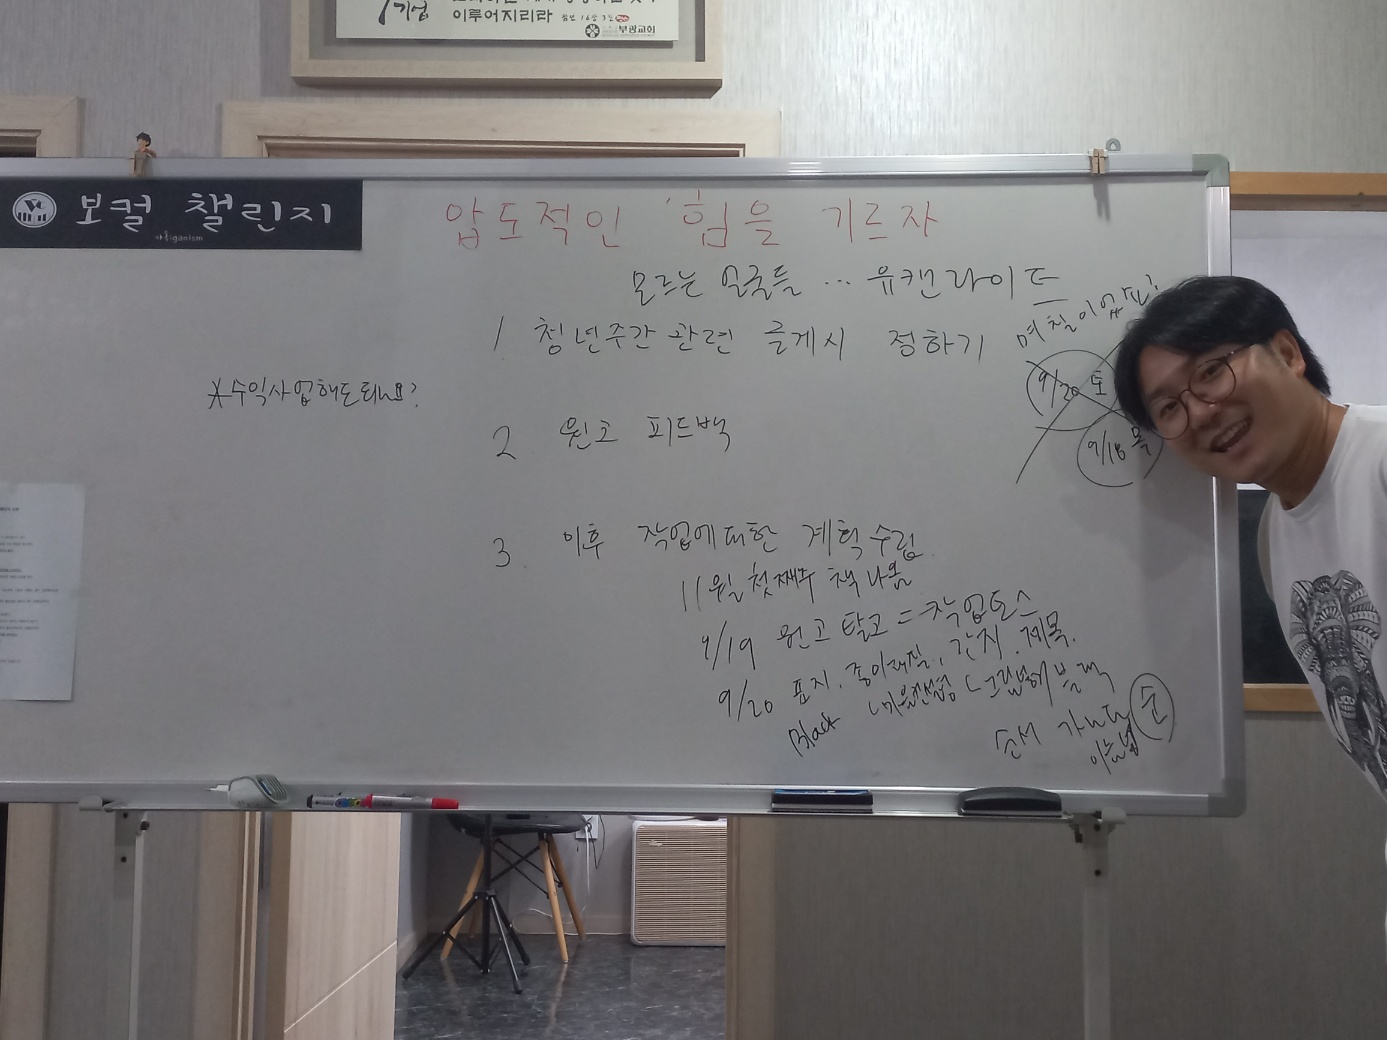 이루어지리라 잠언 16장 3절
부광교회
보컬 챌린지
ganism
압도적인 힘을 기르자
모르는 얼굴들 ... 유캔라이트
1 청년주간 관련 글게시 정하기
며칠이었죠?
9/20 토
9/18 목
*수익사업해도되나요?
2 원고 피드백
3 이후 작업에대한 계획수립
11월 첫째주 책나옴
9/19 원고 탈고 = 작업토스
9/20 표지, 종이재질, 간지, 제목.
Black
순서 가나다순
이름별